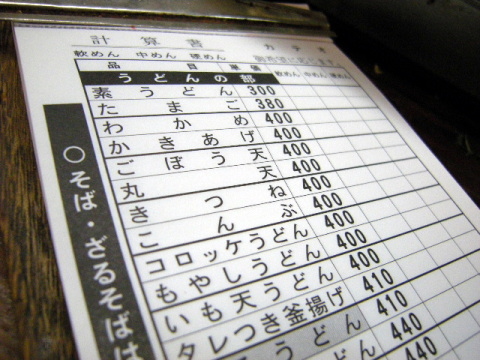 計算書
カデオ
軟めん 中めん 硬めん
品目 単価 軟めん 中めん 硬めん
うどんの部
素うどん 300
たまご 380
わかめ 400
かきあげ 400
ごぼう天 400
丸天 400
きつね 400
こんぶ 400
コロッケうどん 400
もやしうどん 400
いも天うどん 410
タレつき釜揚げ 410
うどん 440
440
○そば・ざるそばは